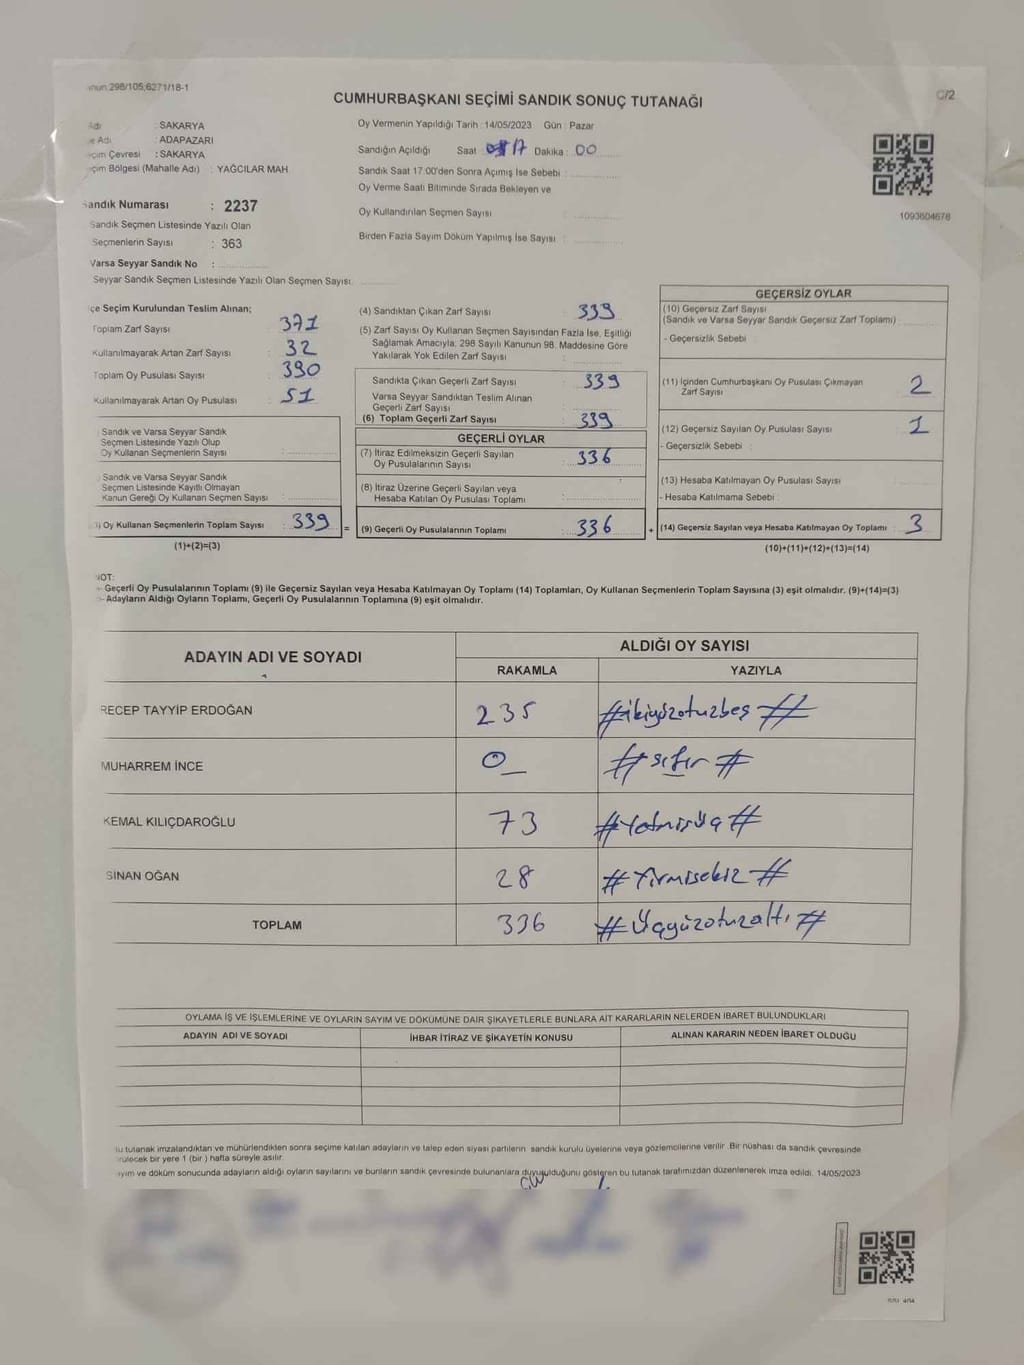 298/105;6271/18-1
C/2
CUMHURBAŞKANI SEÇİMİ SANDIK SONUÇ TUTANAĞI
Adı : SAKARYA
Adı : ADAPAZARI
Çevresi : SAKARYA
Bölgesi (Mahalle Adı) : YAĞCILAR MAH
Sandık Numarası : 2237
Sandık Seçmen Listesinde Yazılı Olan
Seçmenlerin Sayısı : 363
Varsa Seyyar Sandık No :
Seyyar Sandık Seçmen Listesinde Yazılı Olan Seçmen Sayısı:
Oy Vermenin Yapıldığı Tarih : 14/05/2023 Gün : Pazar
Sandığın Açıldığı Saat 17 Dakika : 00
Sandık Saat 17:00'den Sonra Açımış İse Sebebi :
Oy Verme Saati Bitiminde Sırada Bekleyen ve
Oy Kullandırılan Seçmen Sayısı :
Birden Fazla Sayım Döküm Yapılmış İse Sayısı :
1093604678
Seçim Kurulundan Teslim Alınan;
Toplam Zarf Sayısı : 371
Kullanılmayarak Artan Zarf Sayısı : 32
Toplam Oy Pusulası Sayısı : 390
Kullanılmayarak Artan Oy Pusulası : 51
Sandık ve Varsa Seyyar Sandık
Seçmen Listesinde Yazılı Olup
Oy Kullanan Seçmenlerin Sayısı :
Sandık ve Varsa Seyyar Sandık
Seçmen Listesinde Kayıtlı Olmayan
Kanun Gereği Oy Kullanan Seçmen Sayısı :
) Oy Kullanan Seçmenlerin Toplam Sayısı : 339 =
(1)+(2)=(3)
(4) Sandıktan Çıkan Zarf Sayısı : 339
(5) Zarf Sayısı Oy Kullanan Seçmen Sayısından Fazla İse, Eşitliği
Sağlamak Amacıyla, 298 Sayılı Kanunun 98. Maddesine Göre
Yakılarak Yok Edilen Zarf Sayısı :
Sandıkta Çıkan Geçerli Zarf Sayısı : 339
Varsa Seyyar Sandıktan Teslim Alınan
Geçerli Zarf Sayısı :
(6) Toplam Geçerli Zarf Sayısı : 339
GEÇERLİ OYLAR
(7) İtiraz Edilmeksizin Geçerli Sayılan
Oy Pusulalarının Sayısı : 336
(8) İtiraz Üzerine Geçerli Sayılan veya
Hesaba Katılan Oy Pusulası Toplamı :
(9) Geçerli Oy Pusulalarının Toplamı : 336 +
GEÇERSİZ OYLAR
(10) Geçersiz Zarf Sayısı
(Sandık ve Varsa Seyyar Sandık Geçersiz Zarf Toplamı) :
- Geçersizlik Sebebi :
(11) İçinden Cumhurbaşkanı Oy Pusulası Çıkmayan
Zarf Sayısı : 2
(12) Geçersiz Sayılan Oy Pusulası Sayısı : 1
- Geçersizlik Sebebi :
(13) Hesaba Katılmayan Oy Pusulası Sayısı :
- Hesaba Katılmama Sebebi :
(14) Geçersiz Sayılan veya Hesaba Katılmayan Oy Toplamı : 3
(10)+(11)+(12)+(13)=(14)
NOT:
- Geçerli Oy Pusulalarının Toplamı (9) ile Geçersiz Sayılan veya Hesaba Katılmayan Oy Toplamı (14) Toplamları, Oy Kullanan Seçmenlerin Toplam Sayısına (3) eşit olmalıdır. (9)+(14)=(3)
- Adayların Aldığı Oyların Toplamı, Geçerli Oy Pusulalarının Toplamına (9) eşit olmalıdır.
ADAYIN ADI VE SOYADI
ALDIĞI OY SAYISI
RAKAMLA YAZIYLA
RECEP TAYYİP ERDOĞAN 235 #ikiyüzotuzbeş#
MUHARREM İNCE 0 #sıfır#
KEMAL KILIÇDAROĞLU 73
SİNAN OĞAN 28 #Yirmisekiz#
TOPLAM 336 #Üçyüzotuzaltı#
OYLAMA İŞ VE İŞLEMLERİNE VE OYLARIN SAYIM VE DÖKÜMÜNE DAİR ŞİKAYETLERLE BUNLARA AİT KARARLARIN NELERDEN İBARET BULUNDUKLARI
ADAYIN ADI VE SOYADI İHBAR İTİRAZ VE ŞİKAYETİN KONUSU ALINAN KARARIN NEDEN İBARET OLDUĞU
Bu tutanak imzalandıktan ve mühürlendikten sonra seçime katılan adayların ve talep eden siyasi partilerin sandık kurulu üyelerine veya gözlemcilerine verilir. Bir nüshası da sandık çevresinde
bir yere 1 (bir ) hafta süreyle asılır.
Sayım ve döküm sonucunda adayların aldığı oyların sayılarını ve bunların sandık çevresinde bulunanlara duyurulduğunu gösteren bu tutanak tarafımızdan düzenlenerek imza edildi. 14/05/2023